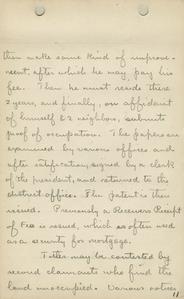 then make some kind of improve-
ment, after which he may pay his
fee. Then he must reside there
2 years, and finally, on affidavit
of himself & 2 neighbors, submit
proof of occupation. The papers are
examined by various offices and
after ratification, signed by a clerk
of the president, and returned to the
district office. The patent is then
issued. Previously a Receivers Receipt
of Fee is issued, which is often used
as a security for mortgage.
Titles may be contested by
second claimants who find the
land unoccupied. Various notices
11